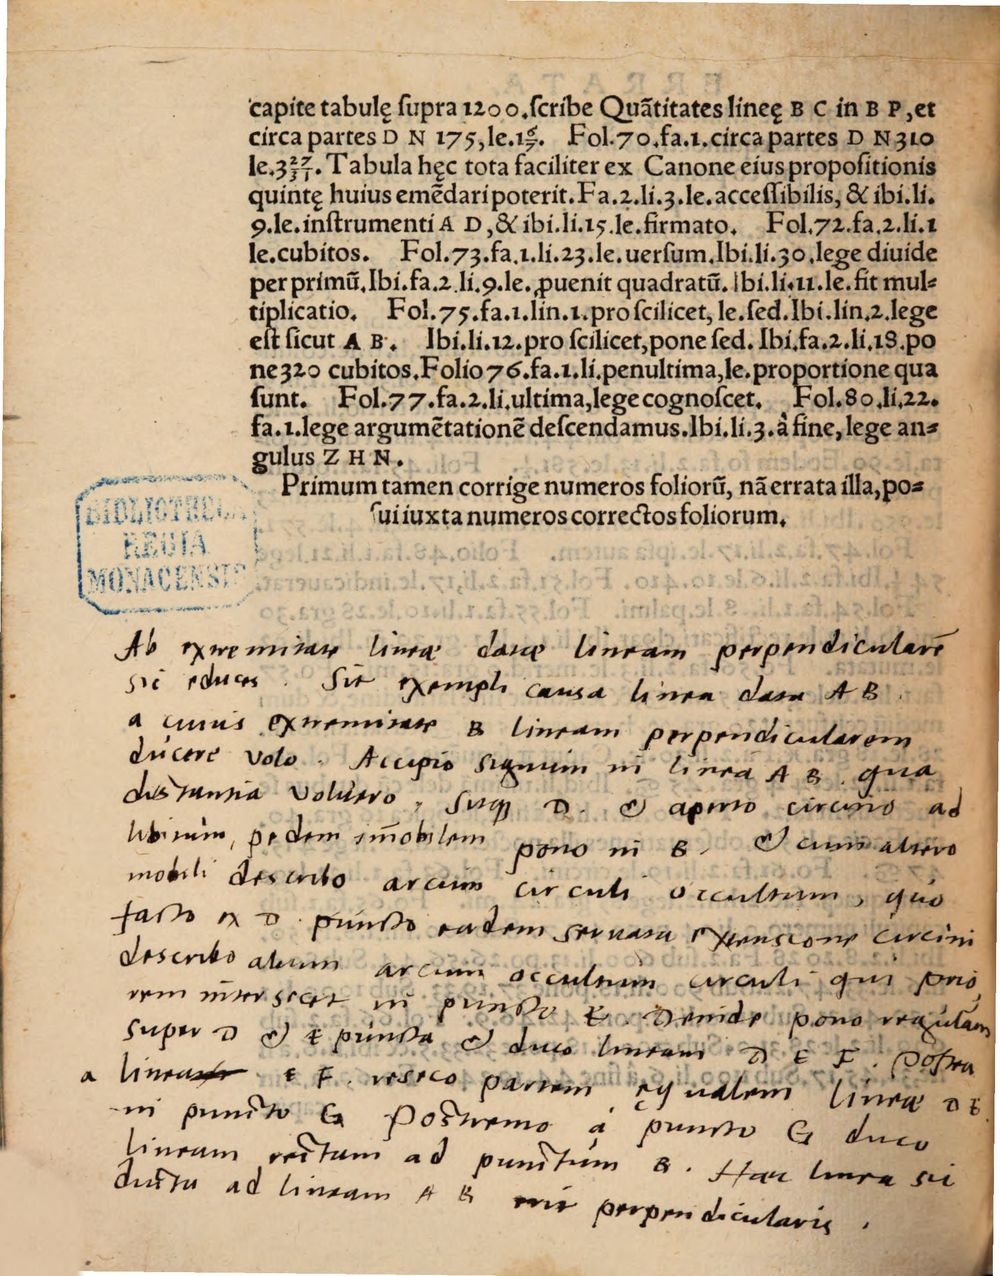 capite tabulę ſupra 1200.ſcribe Quãtitates lineę B C in B P,et
circa partes D N 175,le.1 6/7. Fol.70.fa.1.circa partes D N 310
le.3 27/31. Tabula hęc tota faciliter ex Canone eius propoſitionis
quintę huius emẽdari poterit.Fa.2.li.3.le.acceſſibilis, & ibi.li.
9.le.inſtrumenti A D,& ibi.li.15.le.firmato. Fol.72.fa.2.li.1
le.cubitos. Fol.73.fa.1.li.23.le.uerſum.Ibi.li.30.lege diuide
per primũ.Ibi.fa.2.li.9.le.ꝓuenit quadratũ. Ibi.li.11.le.fit mul⸗
tiplicatio. Fol.75.fa.1.lin.1.pro ſcilicet, le.ſed.Ibi.lin.2.lege
eſt ſicut A B. Ibi.li.12.pro ſcilicet,pone ſed. Ibi.fa.2.li.18.po
ne 320 cubitos.Folio 76.fa.1.li.penultima,le.proportione qua
ſunt. Fol.77.fa.2.li.ultima,lege cognoſcet. Fol.80.li.22.
fa.1.lege argumẽtationẽ deſcendamus.Ibi.li.3.à fine,lege an⸗
gulus Z H N.
Primum tamen corrige numeros foliorũ, nã errata illa,po⸗
ſui iuxta numeros correctos foliorum.
BIBLIOTHECA
REGIA
MONACENSIS
Ab extremitate lineæ datæ lineam perpendicularẽ
sic educes. Sit exempli causa linea data A B.
a cuius extremitate B lineam perpendicularem
ducere volo. Accipio signum in linea A B. qua
distantia voluero, sitqꝫ D. & aperto circino ad
libitum, pedem im̃obilem pono in B. & cum altero
mobili describo arcum circuli occultum, quo
facto ex D. puncto eadem servata extensione circini
describo alium arcum occultum circuli qui prio
rem intersecet in puncto E. Deinde pono regulam
super D & E puncta & duco lineam D E F. Postea
a linea E F. reseco partem ęqualem lineæ D E
in puncto G Postremo a puncto G duco
lineam rectam ad punctum B. Hæc linea sic
ducta ad lineam A B erit perpendicularis.